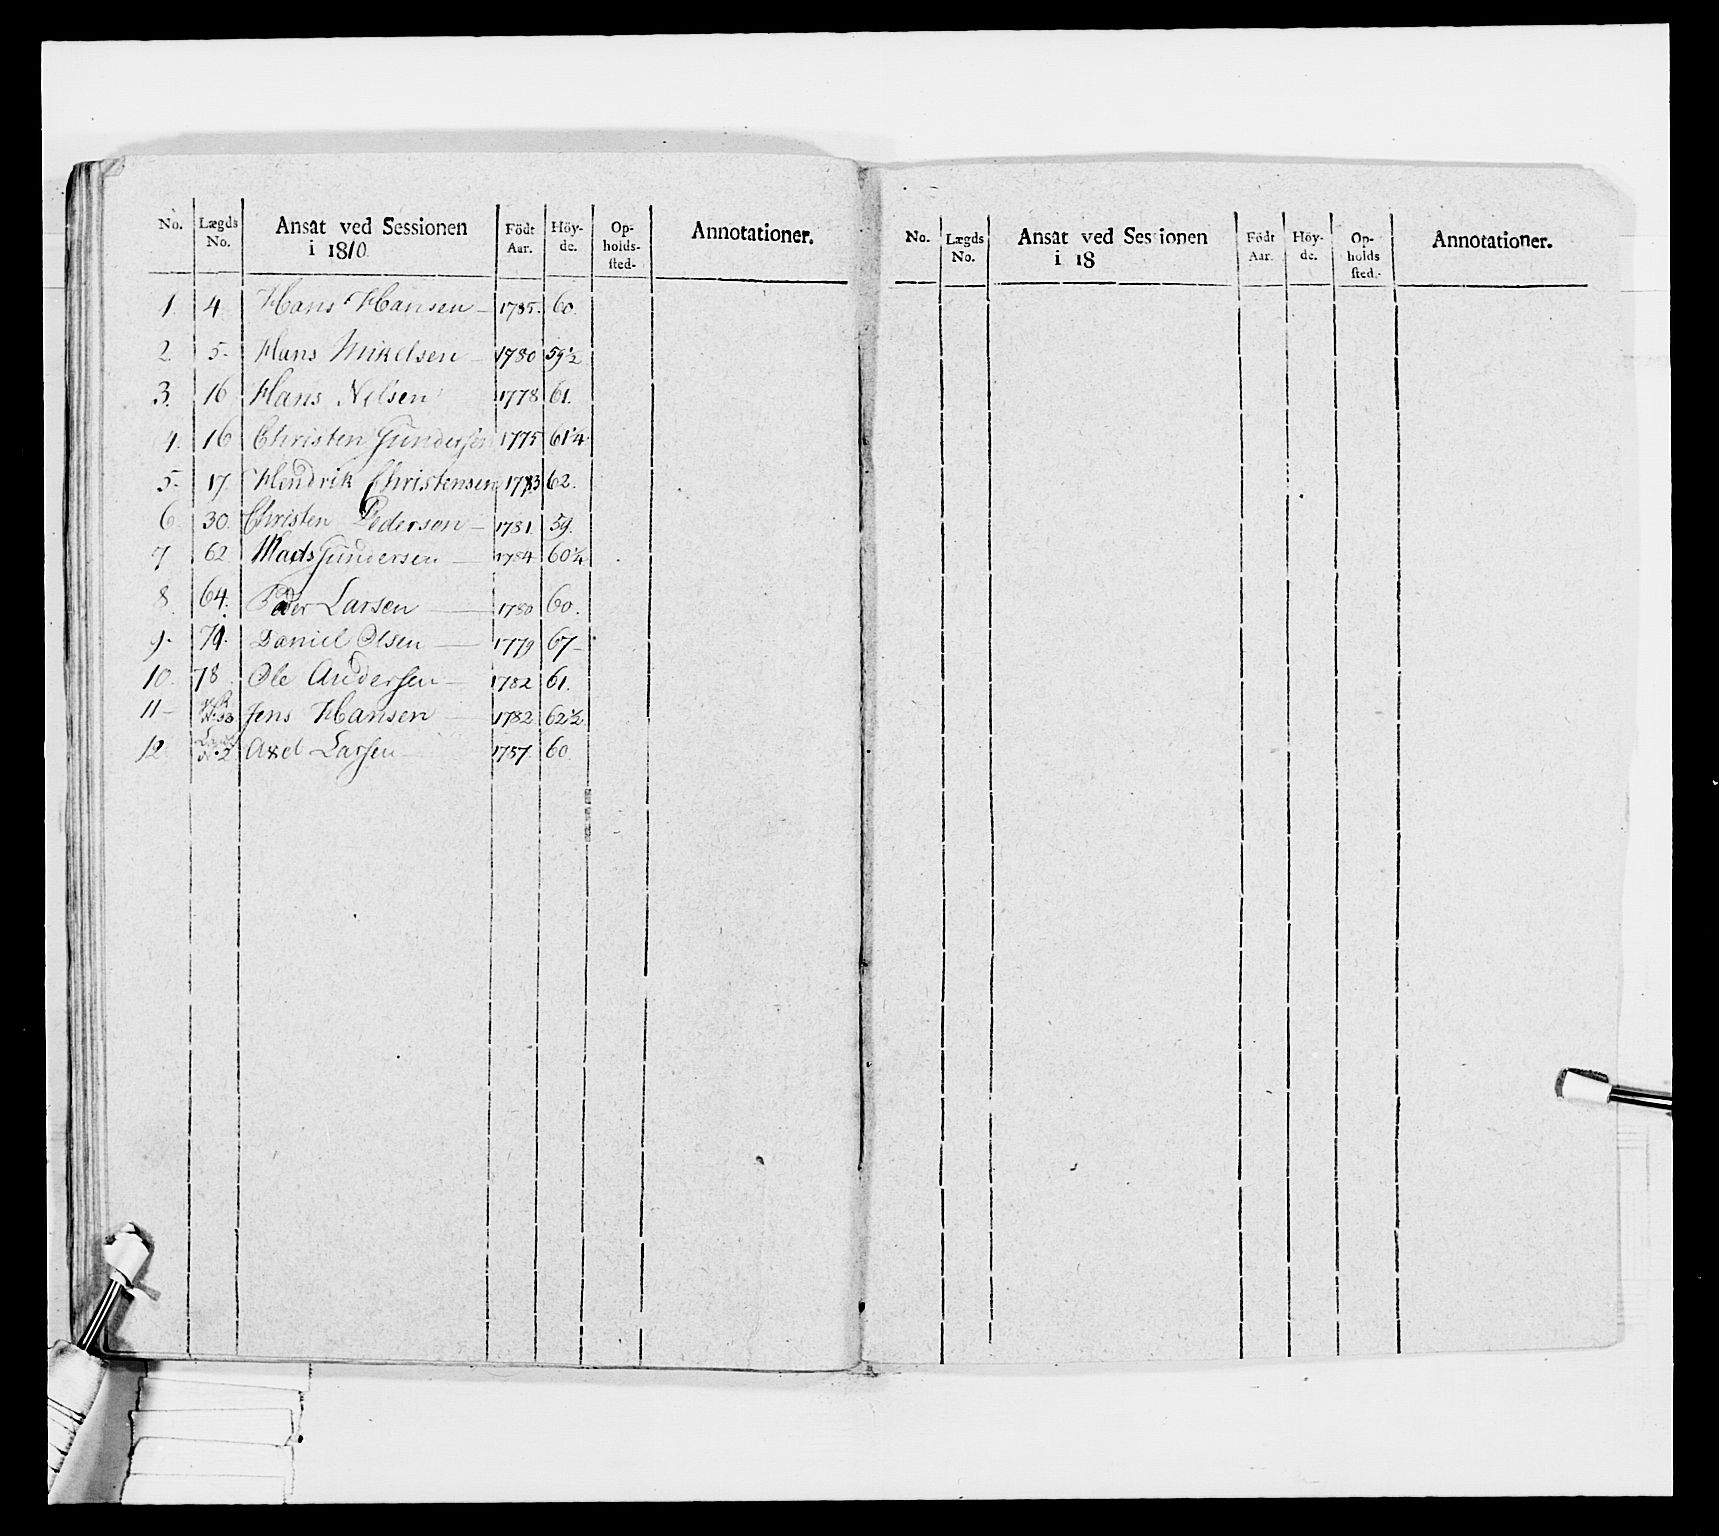 No. Lægds No. Ansat ved Sessionen i 1810. Födt Aar. Höy-de. Op-holds-sted- Annotationer.
1. 4 Hans Hansen 1785. 60.
2. 5- Hans Mikelsen 1780 59½
3. 16 Hans Nilsen 1778 61.
4. 16 Christen Gundersen 1775 61¼
5- 17. Hendrik Christensen 1783 62.
6. 30. Christen Pedersen 1781. 59.
7 62. Mads Gundersen 1784 60¼
8. 64. Peder Larsen 1780 60.
9. 74. Daniel Olsen 1779 67-
10. 78. Ole Andersen 1782 61.
11- Jens Hansen 1782 62½
12. 2 Axel Larsen 1757. 60
No. Lægds No. Ansat ved Sessionen i 18 Födt Aar. Höy-de. Op-holds sted.- Annotationer.